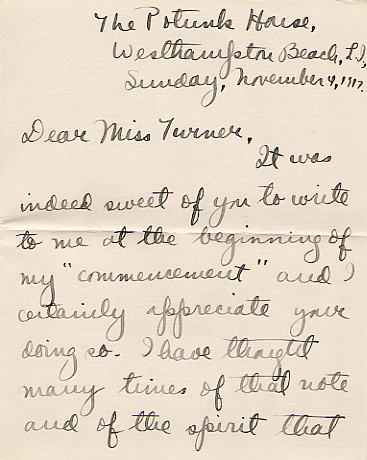 The Potunk House,
Westhampton Beach, L.I.,
Sunday, November 4, 1917.
Dear Miss Turner,
It was
indeed sweet of you to write
to me at the beginning of
my "commencement" and I
certainly appreciate your
doing so. I have thought
many times of that note
and of the spirit that